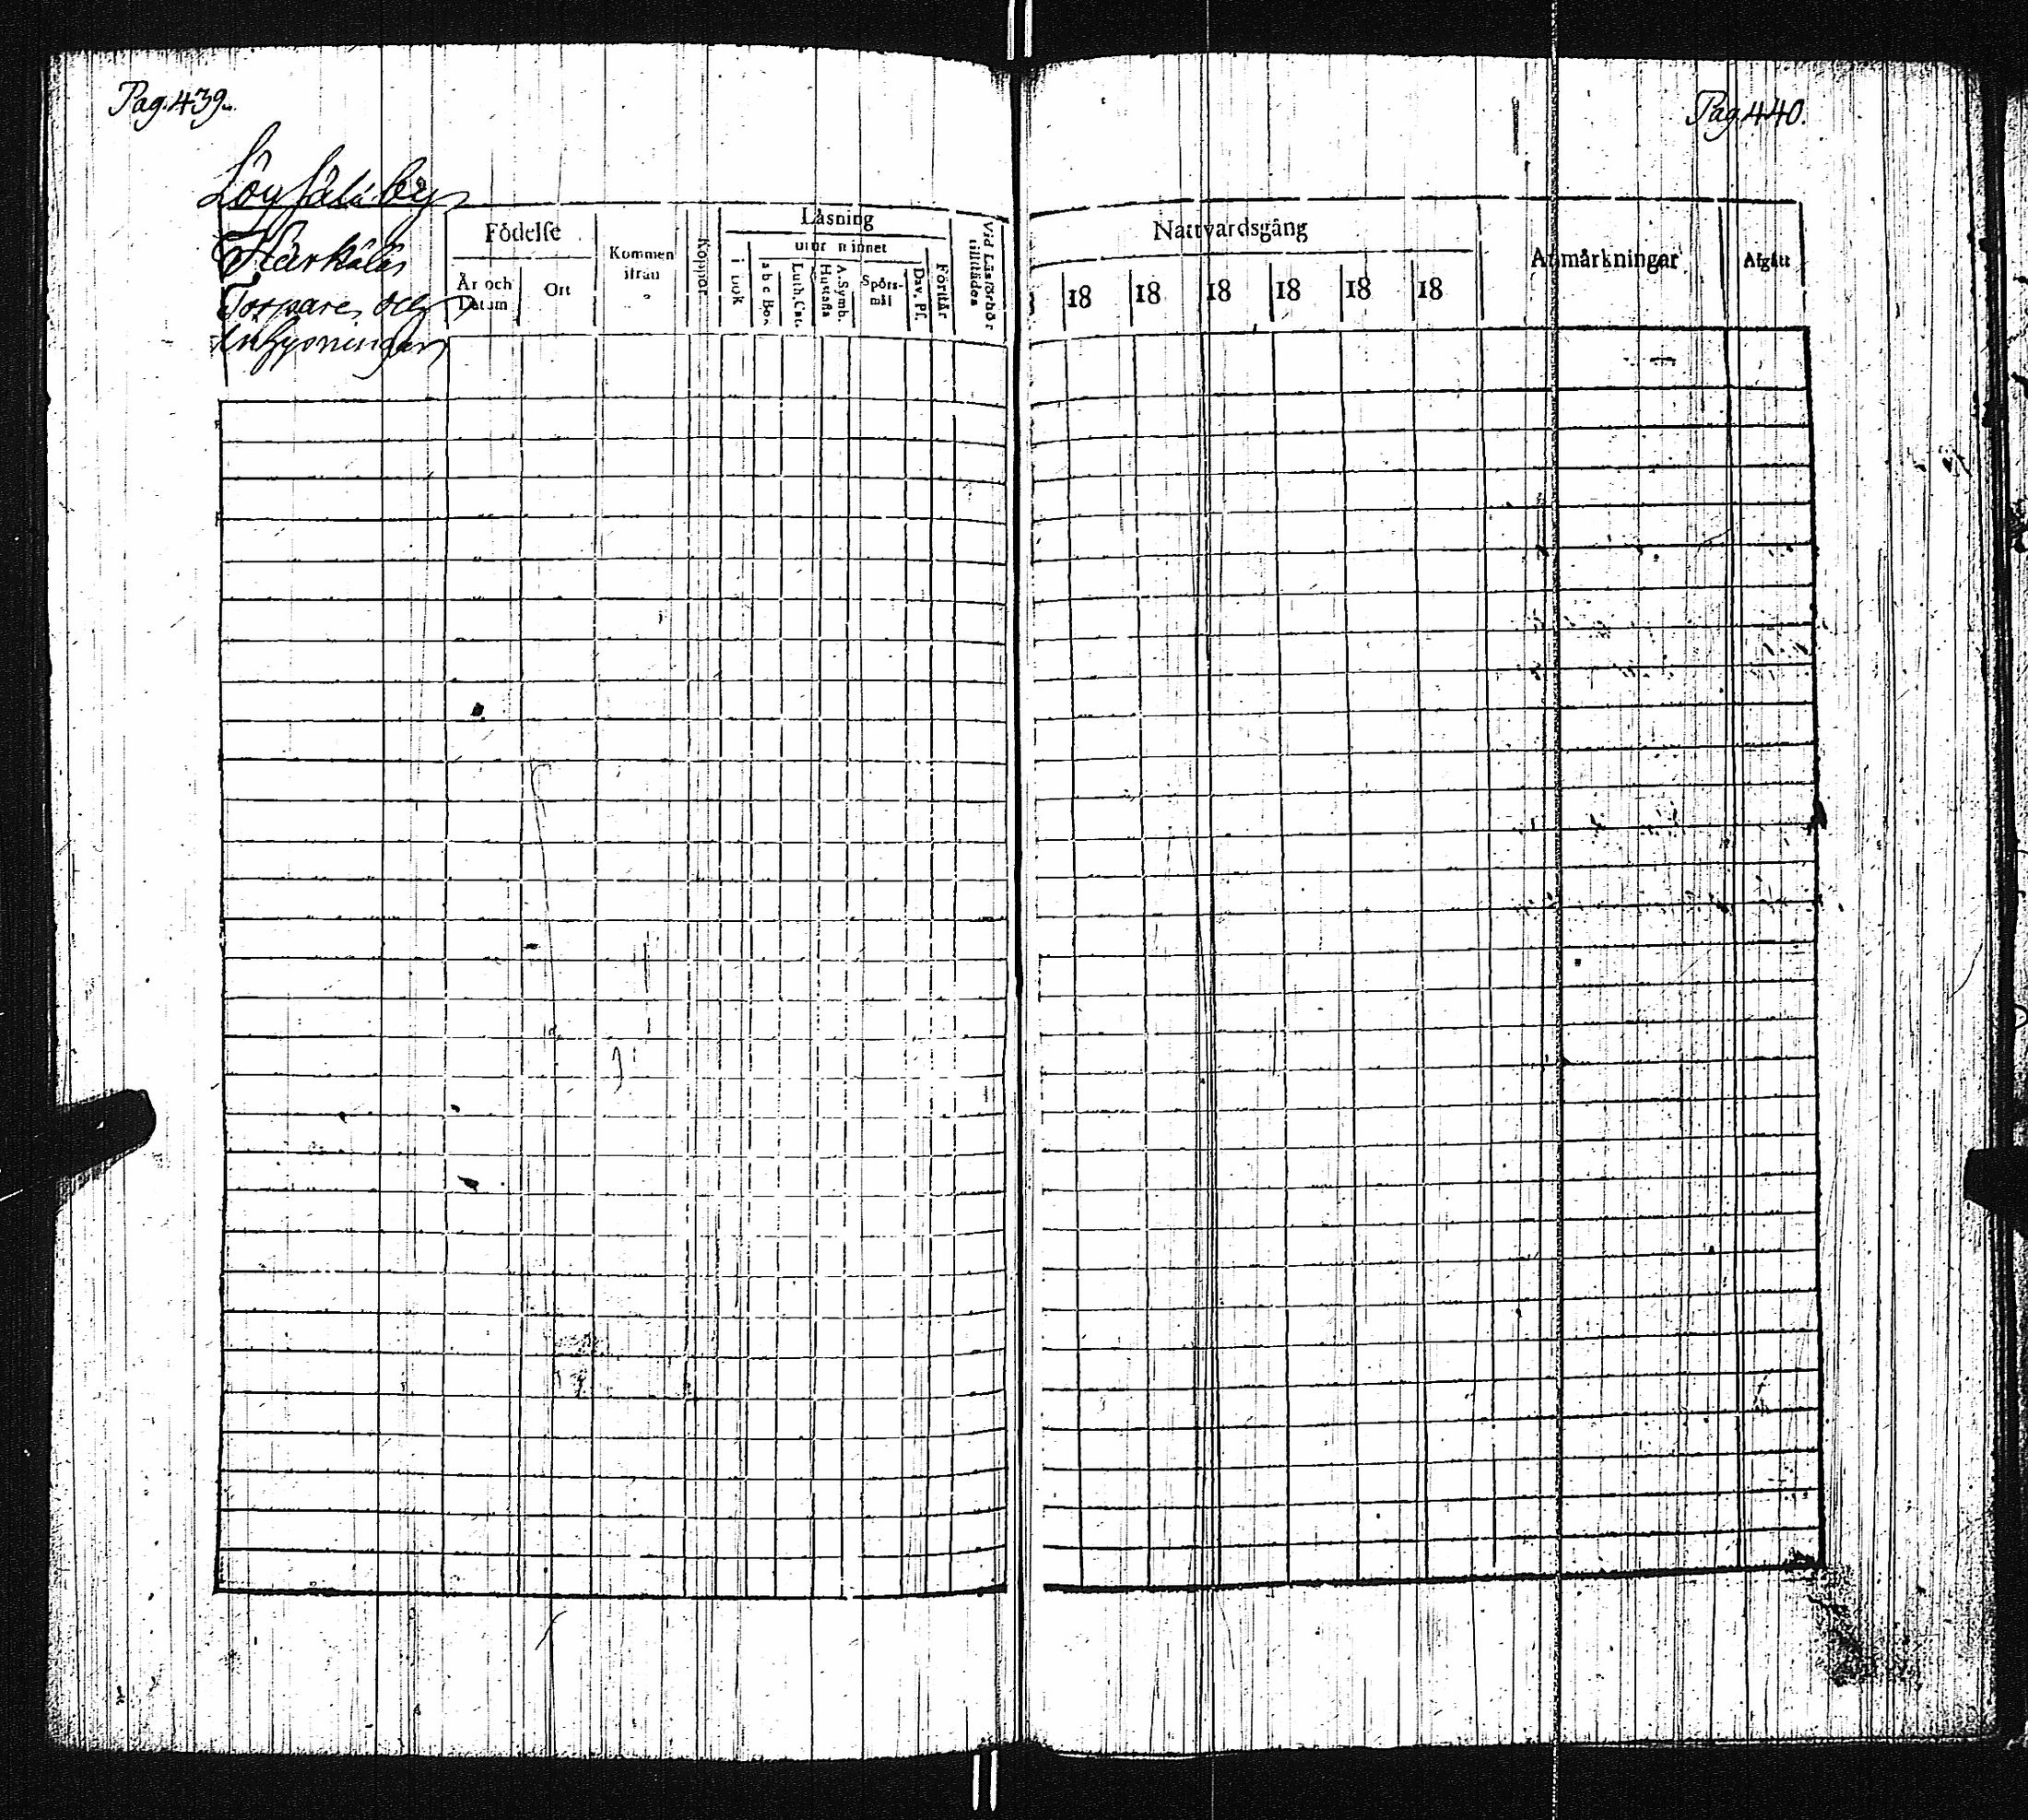 Pag. 439.
Pag. 440.
by
Härkälä
Torpare och
Inhysningar
Födelse
År och Datum
Ort
Kommen ifrån
Koppor
Läsning
utur minnet
i bok
a b c Bok
Luth. Cat.
Hustafla
A. Symb.
Spörs-mål
Dav. Ps.
Förstår
Vid Läsförhör tillstädes
Nattvardsgång
18
18
18
18
18
18
Anmärkningar
Afgått